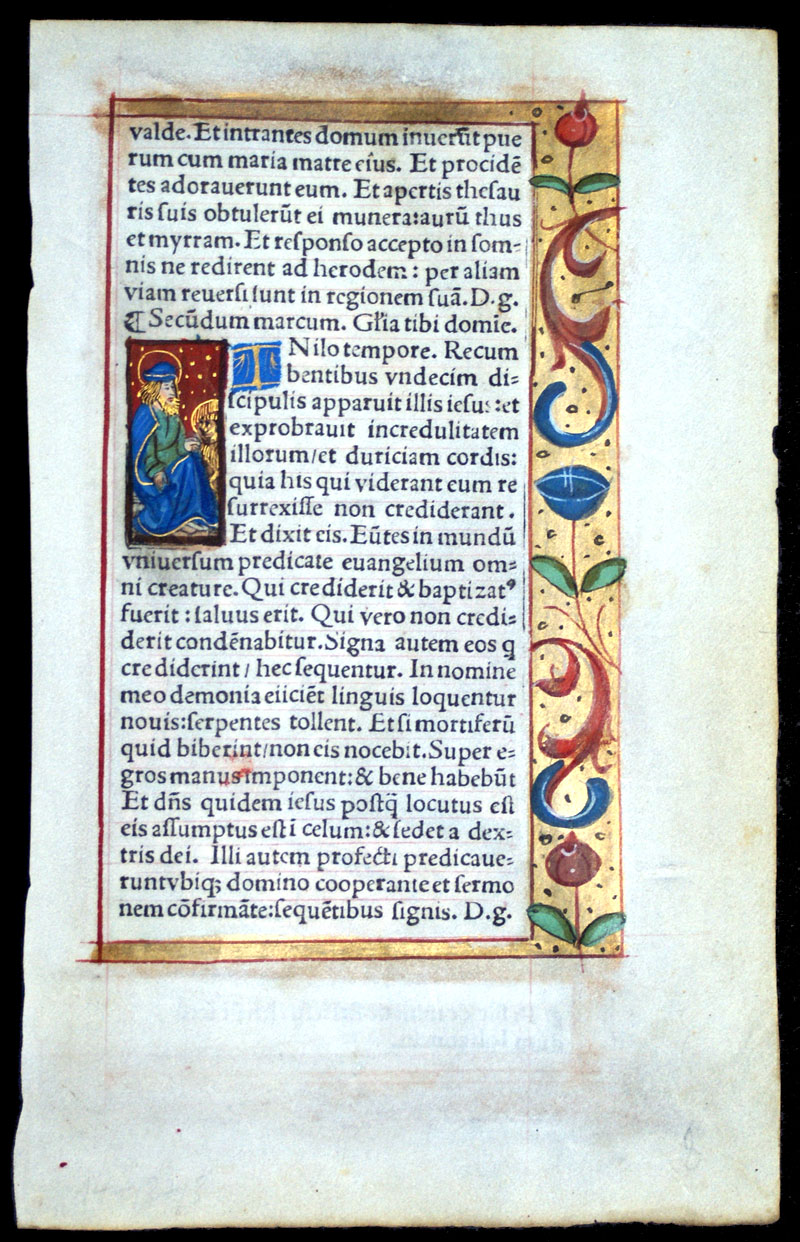 valde. Et intrantes domum inuerūt pue
rum cum maria matre eiꝰus. Et procidē
tes adorauerunt eum. Et apertis theſau
ris ſuis obtulerūt ei munera:aurū thus
et myrram. Et reſponſo accepto in ſom⸗
nis ne redirent ad herodem : per aliam
viam reuerſi ſunt in regionem ſuā. D. g.
¶ Secūdum marcum. Gl̄ia tibi domīe.
INilo tempore. Recum
bentibus vndecim di⸗
ſcipulis apparuit illis ieſus :et
exprobrauit incredulitatem
illorum/et duriciam cordis:
quia his qui viderant eum re
ſurrexiſſe non crediderant.
Et dixit eis. Eūtes in mundū
vniuerſum predicate euangelium om⸗
ni creature. Qui crediderit & baptizatꝰ
fuerit : ſaluus erit. Qui vero non credi⸗
derit condēnabitur. Signa autem eos q
crediderint / hec ſequentur. In nomine
meo demonia eiiciēt linguis loquentur
nouis:ſerpentes tollent. Et ſi mortiferū
quid biberint/non eis nocebit. Super e⸗
gros manus imponent: & bene habebūt
Et dn̄s quidem ieſus poſtq̄ locutus eſt
eis aſſumptus eſt ī celum: & ſedet a dex⸗
tris dei. Illi autem profecti predicaue⸗
runt vbiqꝫ domino cooperante et ſermo
nem cōfirmāte:ſequētibus ſignis. D. g.